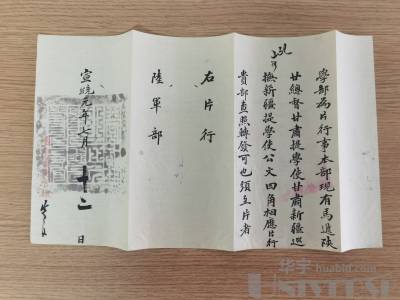 學部為片行事本部現有馬遞陝
甘總督甘肅提學使甘肅新疆巡
撫新疆提學使公文四角相應片行
貴部查照轉發可也須至片者
右片行
陸軍部
宣統元年七月十二日
华宇 huabid.com